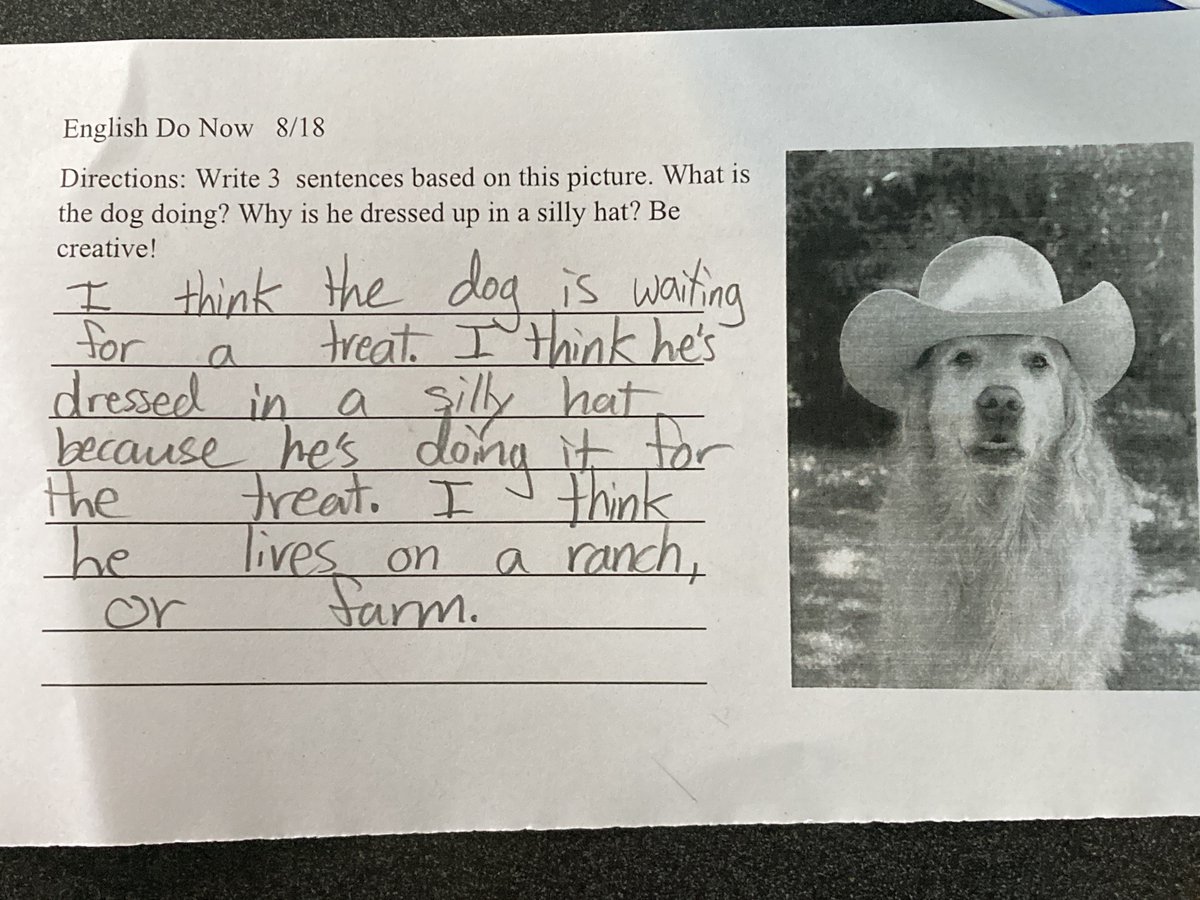 English Do Now 8/18
Directions: Write 3 sentences based on this picture. What is
the dog doing? Why is he dressed up in a silly hat? Be
creative!
I think the dog is waiting
for a treat. I think he's
dressed in a silly hat
because he's doing it for
the treat. I think
he lives on a ranch,
or farm.